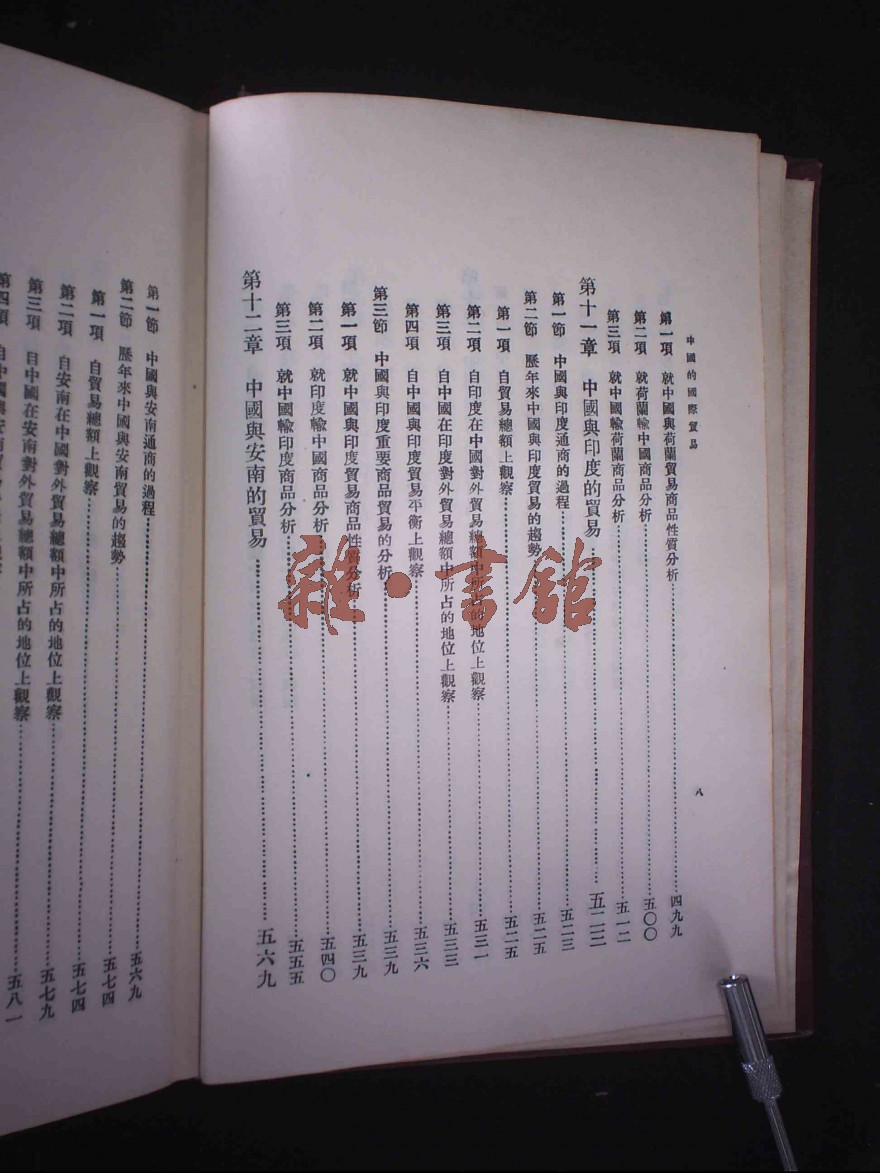 中國的國際貿易
八
第一項 就中國與荷蘭貿易商品性質分析 四九九
第二項 就荷蘭輸中國商品分析 五〇〇
第三項 就中國輸荷蘭商品分析 五一二
第十一章 中國與印度的貿易 五二三
第一節 中國與印度通商的過程 五二三
第二節 歷年來中國與印度貿易的趨勢 五二五
第一項 自貿易總額上觀察 五二五
第二項 自印度在中國對外貿易總額中所占的地位上觀察 五三一
第三項 自中國在印度對外貿易總額中所占的地位上觀察 五三三
第四項 自中國與印度貿易平衡上觀察 五三六
第三節 中國與印度重要商品貿易的分析 五三九
第一項 就中國與印度貿易商品性質分析 五三九
第二項 就印度輸中國商品分析 五四〇
第三項 就中國輸印度商品分析 五五五
第十二章 中國與安南的貿易 五六九
第一節 中國與安南通商的過程 五六九
第二節 歷年來中國與安南貿易的趨勢 五七四
第一項 自貿易總額上觀察 五七四
第二項 自安南在中國對外貿易總額中所占的地位上觀察 五七九
第三項 自中國在安南對外貿易總額中所占的地位上觀察 五八一
第四項
雜·書館